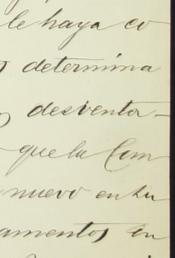 le haya co
determina
desventa-
que la Com
nuevo en su
amentos en